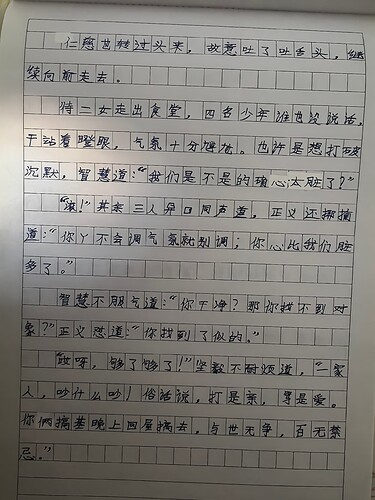 仁慈也转过头来，故意吐了吐舌头，继
续向前走去。
待二女走出食堂，四名少年谁也没说话，
干站着瞪眼，气氛十分尴尬。也许是想打破
沉默，智慧道：“我们是不是的确心太脏了？”
“滚！”其余三人异口同声道，正义还揶揄
道：“你丫不会调气氛就别调，你心比我们脏
多了。”
智慧不服气道：“你干净？那你找不到对
象？”正义怼道：“你找到了似的。”
“哎呀，够了够了！”坚毅不耐烦道，“一家
人，吵什么吵！俗话说，打是亲，骂是爱。
你俩搞基晚上回屋搞去，与世无争，百无禁
忌。”